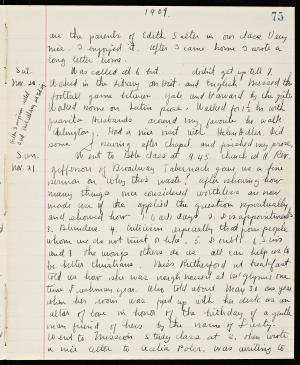 1909.
75
are the parents of Edith Salter in our class. Very
nice. I enjoyed it. After I came home I wrote a
long letter home.
Sat. Was called at 6 but didn't get up till 7.
Nov. 20 Worked in the library on Hist. and English. Missed the
football game between Yale and Harvard by the girls
Worked some on Latin prose. Walked for 1½ hr with
Juanita Husbands around my favorite walk
Had a nice visit with Helen Did
some after chapel and finished my prose.
Sun. Went to Bible class at 9.45. Church at 11. Rev.
Nov. 21 Jefferson of Broadway Tabernacle gave us a fine
sermon on "Why this waste", after showing how
many things once considered worthless are now
made use of. He applied the question spiritually
and showed how 1. Our days 2. Disappointments
3. Blunders 4. Criticism especially that from people
whom we do not trust or like. 5. Doubts 6. Sins
and 7. The wrongs others do us all can help us to
be better Christians. Miss Rutherford at
told us how she was one
time Freshman year. Also told about May 30 one year
when her room was fixed up with her desk as an
altar of love in honor of the birthday of a gentle
man friend of hers by the name of
Went to Mission Study class at 2, then wrote
a nice letter to Adelia Poler. Was writing to